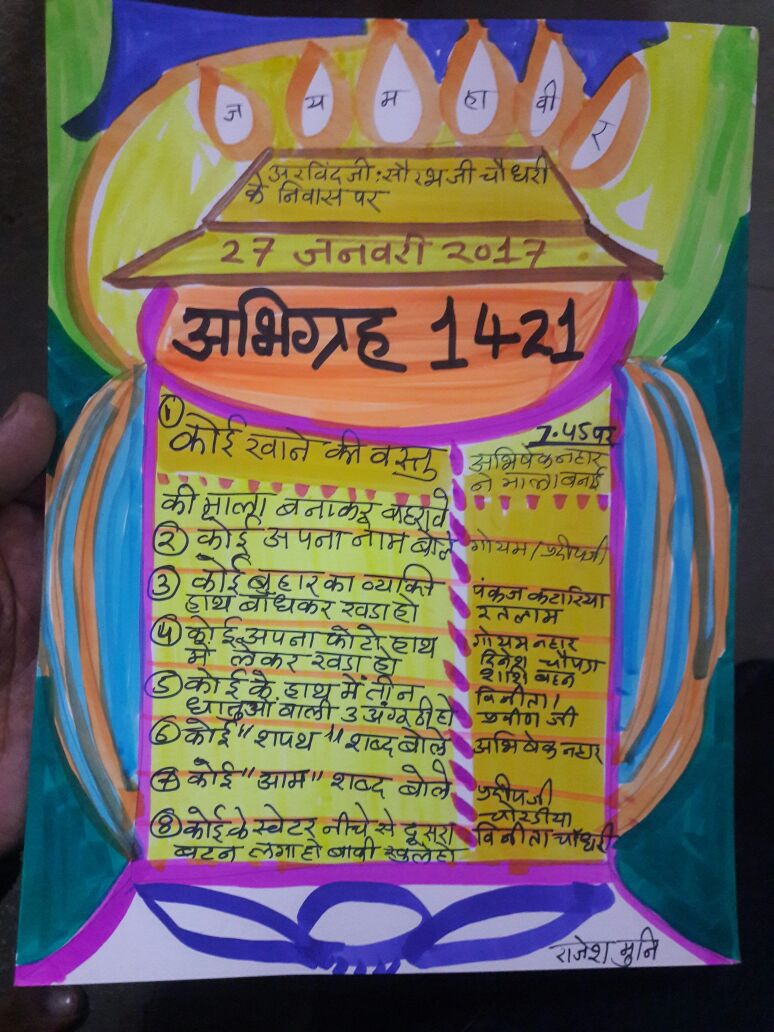 ज य म हा वी र
अरविंदजी: सौरभजी चौधरी
के निवास पर
27 जनवरी 2017
अभिग्रह 1421
① कोई खाने की वस्तु
की माला बनाकर
7.45 पर
अभिषेक नहार
ने माला बनाई
② कोई अपना नाम बोले
गोयम/प्रदीपजी
③ कोई बुहार का व्यक्ति
हाथ बाँधकर खडा हो
पंकज कटारिया
रतलाम
④ कोई अपना फोटो हाथ
में लेकर खडा हो
गोयम नहार
दिनेश चौपडा
शशि बहन
⑤ कोई के हाथ में तीन
धातुओं वाली 3 अंगूठी हो
विनीता/
प्रवीण जी
⑥ कोई "शपथ" शब्द बोले
अभिषेक नहार
⑦ कोई "आम" शब्द बोले
प्रदीपजी
चोरडीया
⑧ कोई के स्वेटर नीचे से दूसरा
बटन लगा हो बाकी खुले हो
विनीता चौधरी
राजेश मुनि